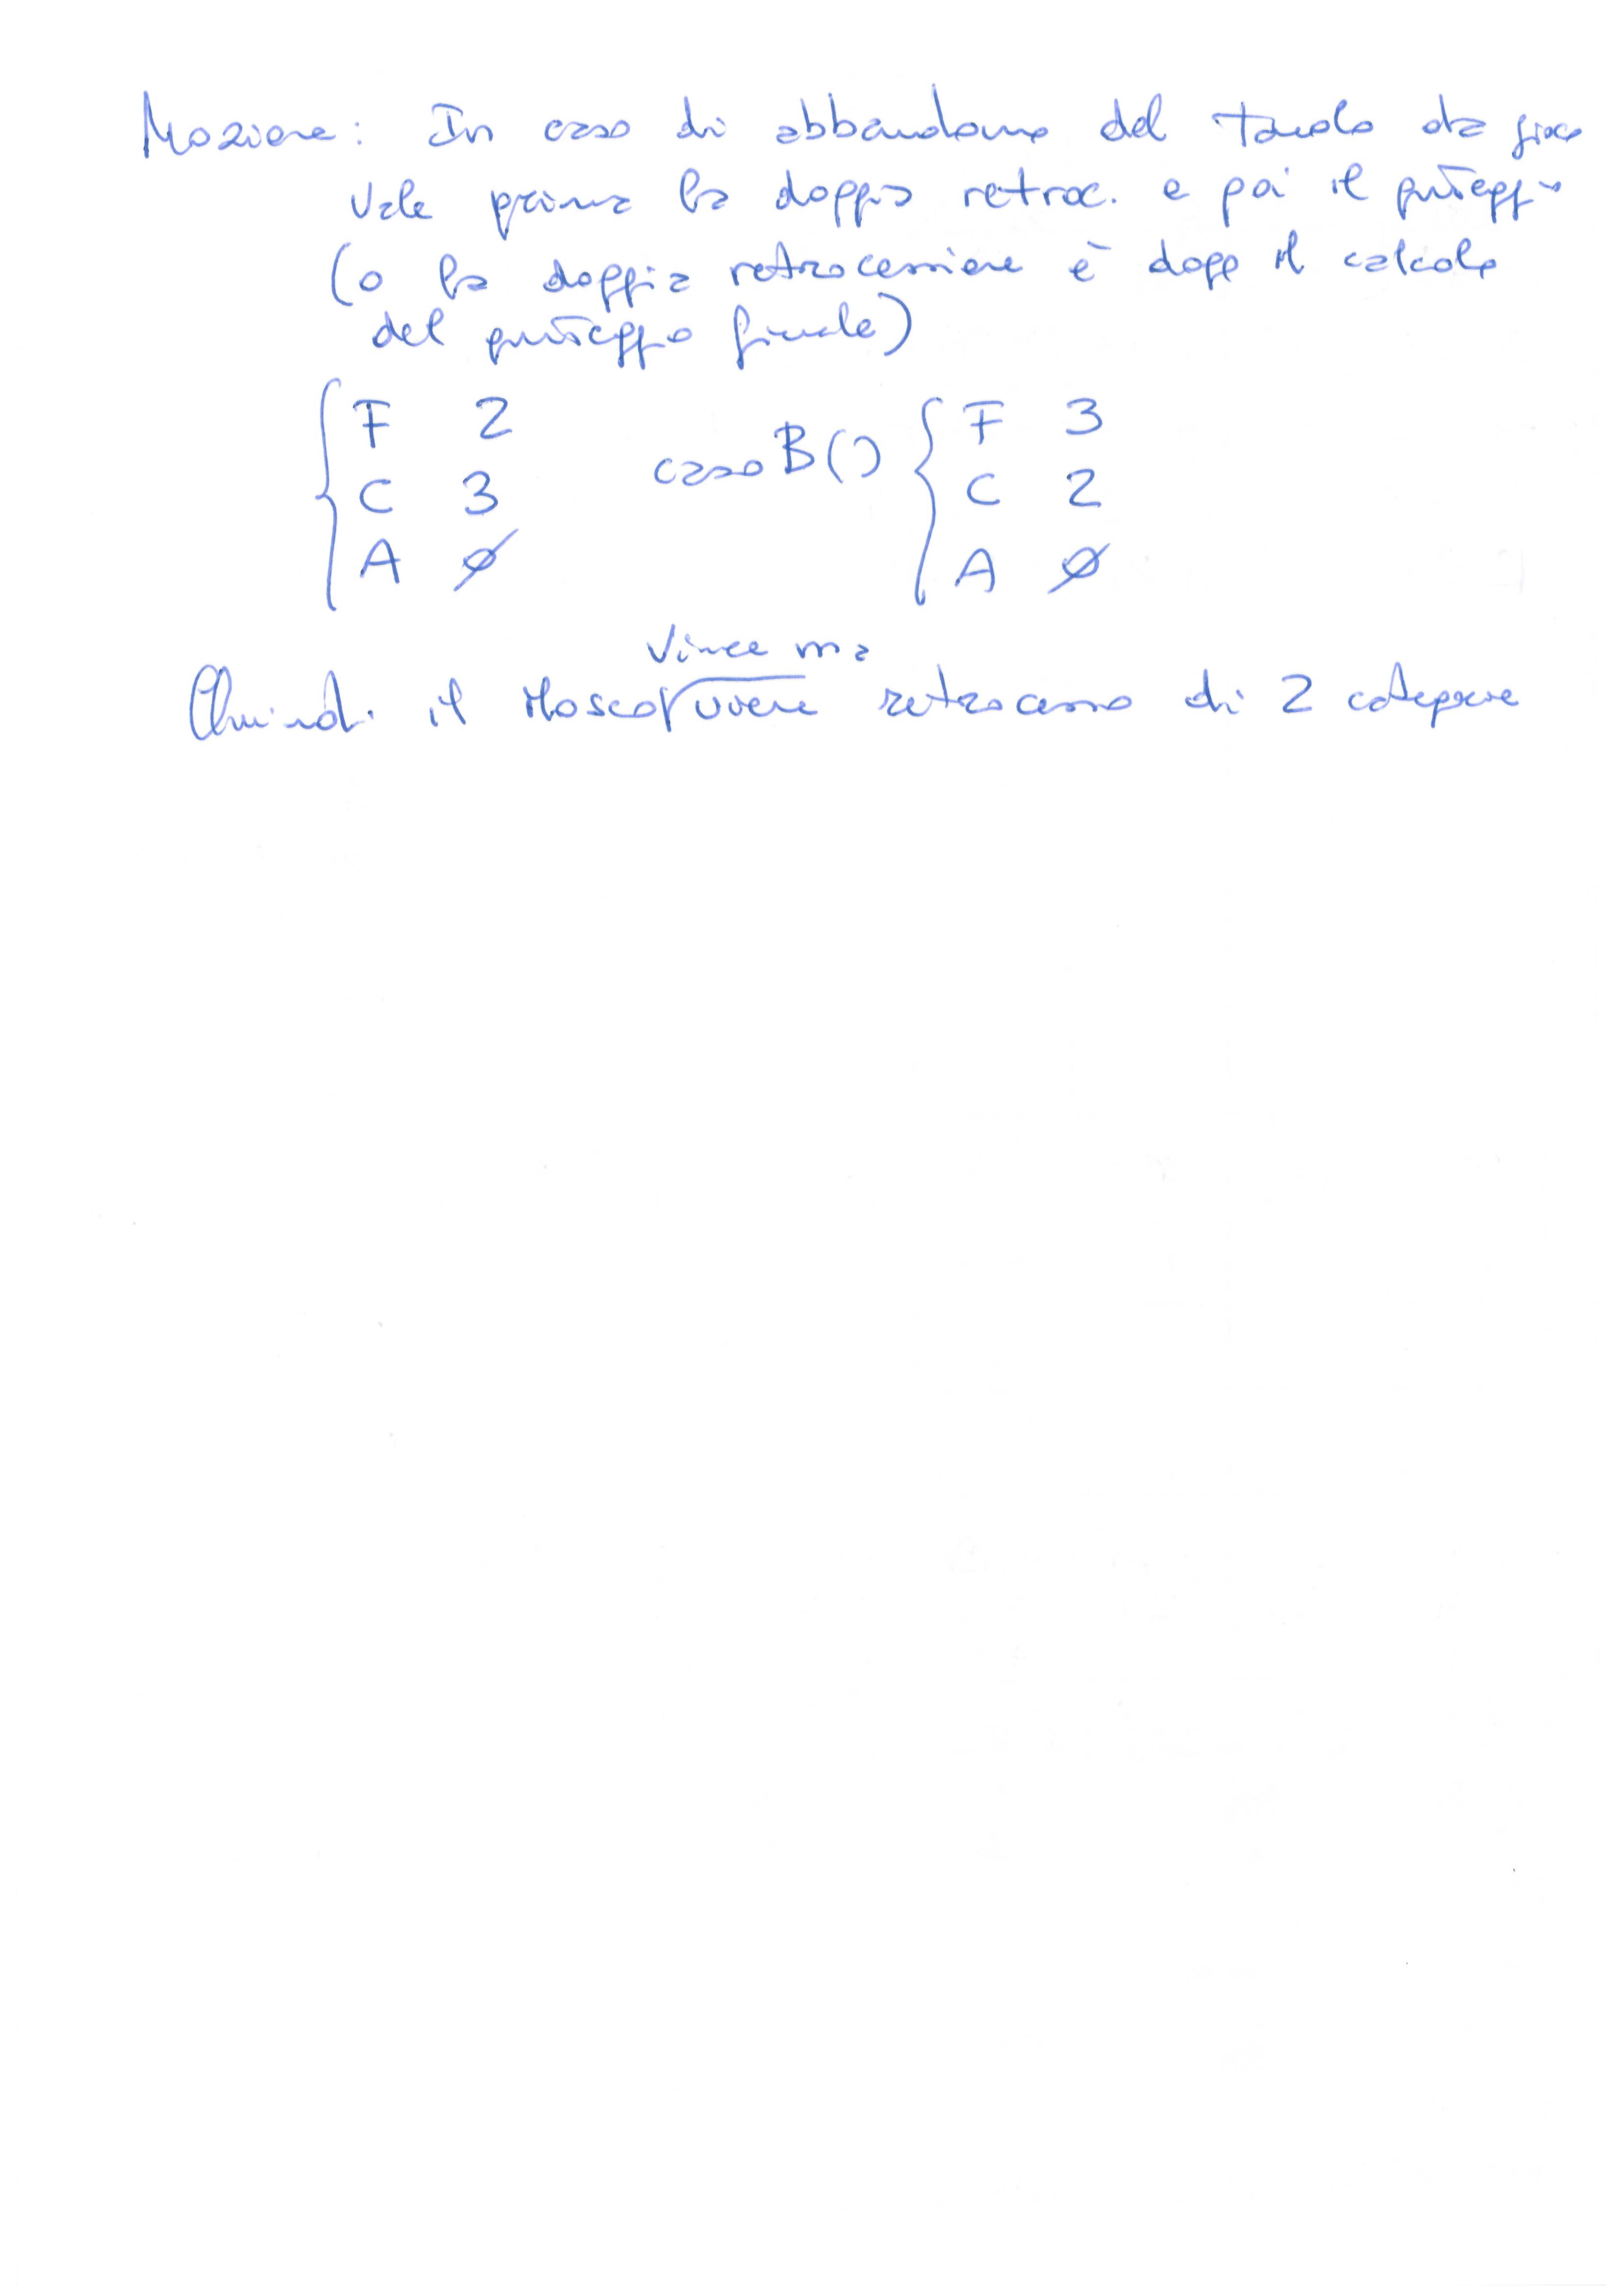 Mozione: In caso di abbandono del tavolo da gioco
vale prima la doppia retroc. e poi il punteggio
(o la doppia retrocessione è dopo il calcolo
del punteggio finale)
F 2 caso B() F 3
C 3 C 2
A Ø A Ø
vince ma
Quindi il Mosco viene retrocesso di 2 categorie